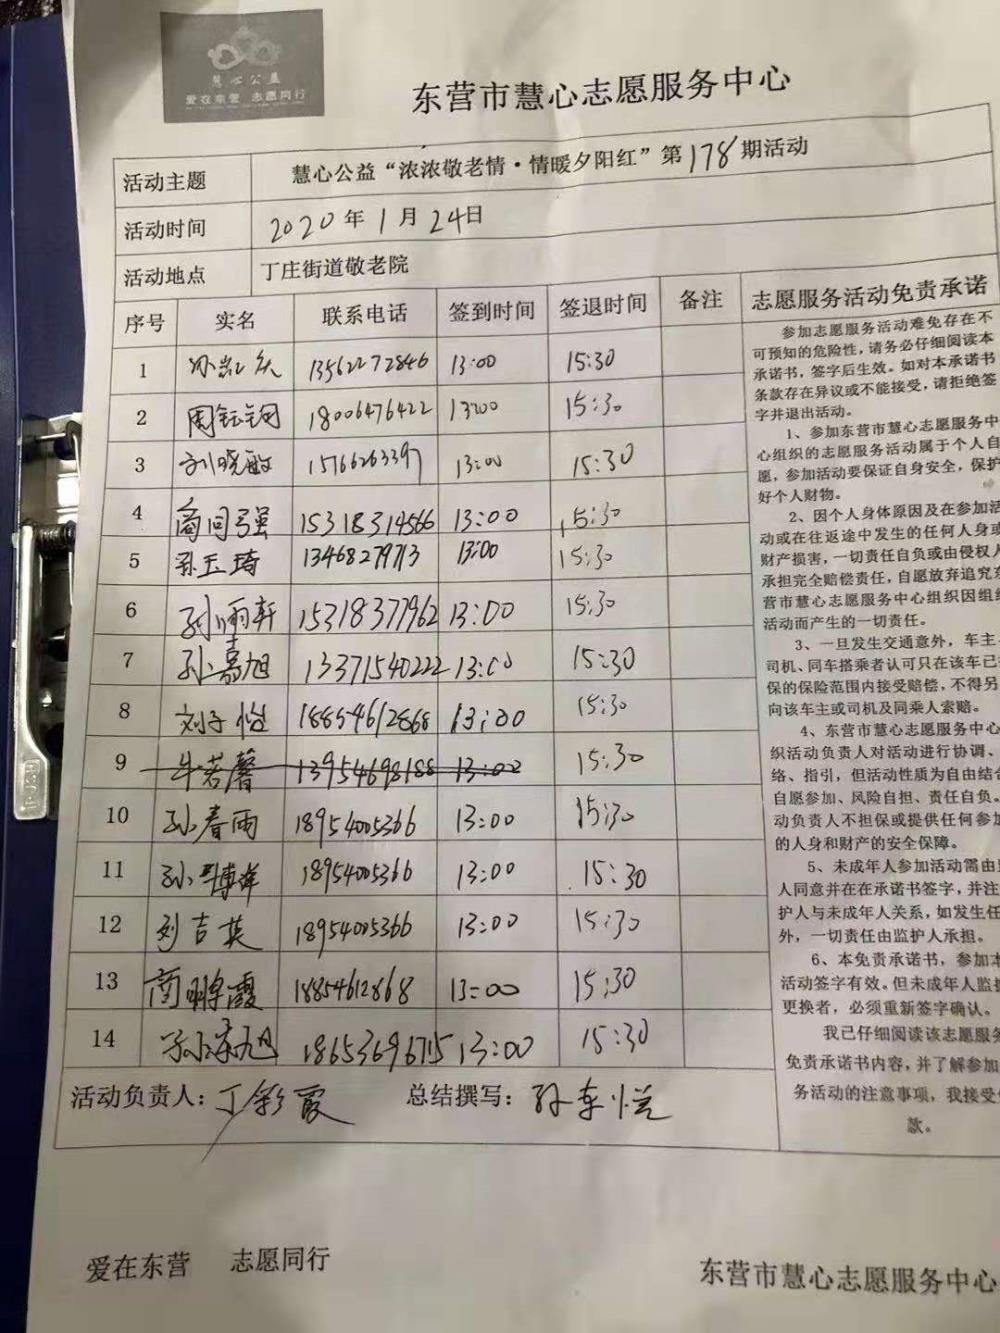 慧心公益
爱在东营 志愿同行
东营市慧心志愿服务中心
活动主题 慧心公益“浓浓敬老情·情暖夕阳红”第178期活动
活动时间 2020年1月24日
活动地点 丁庄街道敬老院
序号 实名 联系电话 签到时间 签退时间 备注
1 13562272846 13:00 15:30
2 周钰钧 18006476422 13:00 15:30
3 刘晓敏 15766263397 13:00 15:30
4 商同强 15318314566 13:00 15:30
5 孙玉琦 13468279713 13:00 15:30
6 孙雨轩 15318377962 13:00 15:30
7 孙嘉旭 13371540222 13:00 15:30
8 刘子恺 18854612868 13:00 15:30
9 牛若馨 13954698188 13:00 15:30
10 孙春雨 18954005366 13:00 15:30
11 孙博洋 18954005366 13:00 15:30
12 刘吉英 18954005366 13:00 15:30
13 商鹏霞 18854612868 13:00 15:30
14 18653696715 13:00 15:30
活动负责人：丁彩霞 总结撰写：孙东悦
志愿服务活动免责承诺
参加志愿服务活动难免存在不
可预知的危险性，请务必仔细阅读本
承诺书，签字后生效。如对本承诺书
条款存在异议或不能接受，请拒绝签
字并退出活动。
1、参加东营市慧心志愿服务中
心组织的志愿服务活动属于个人自
愿，参加活动要保证自身安全，保护
好个人财物。
2、因个人身体原因及在参加活
动或在往返途中发生的任何人身或
财产损害，一切责任自负或由侵权人
承担完全赔偿责任，自愿放弃追究东
营市慧心志愿服务中心组织因组织
活动而产生的一切责任。
3、一旦发生交通意外，车主、
司机、同车搭乘者认可只在该车已投
保的保险范围内接受赔偿，不得另
向该车主或司机及同乘人索赔。
4、东营市慧心志愿服务中心
织活动负责人对活动进行协调、
络、指引，但活动性质为自由结合
自愿参加、风险自担、责任自负。
动负责人不担保或提供任何参加
的人身和财产的安全保障。
5、未成年人参加活动需由监
人同意并在在承诺书签字，并注
护人与未成年人关系，如发生任
外，一切责任由监护人承担。
6、本免责承诺书，参加本
活动签字有效。但未成年人监护
更换者，必须重新签字确认。
我已仔细阅读该志愿服务
免责承诺书内容，并了解参加
务活动的注意事项，我接受
款。
爱在东营 志愿同行
东营市慧心志愿服务中心